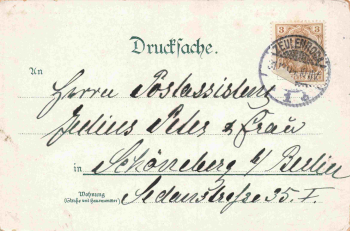 Drucksache.
3 3
ZEULENRODA
An
Herrn Postassistent
Julius Peter & Frau
in Schöneberg b/ Berlin
Wohnung
(Straße und Hausnummer)
Sedanstraße 35. I.